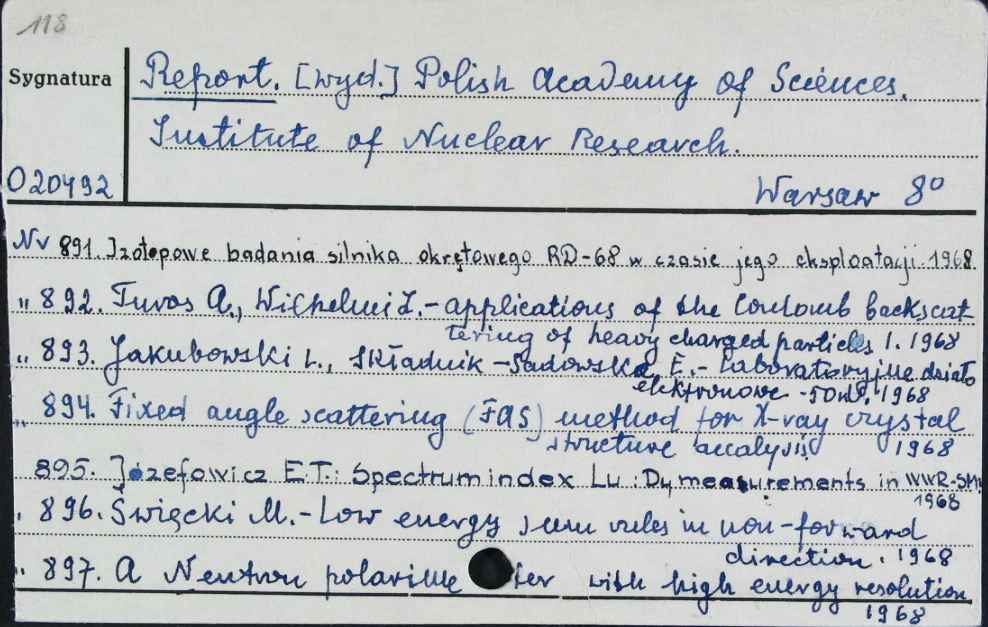 118
Sygnatura
Report. [wyd.] Polish Academy of Sciences.
Institute of Nuclear Research.
020492
Warsaw 8°
Nr 891. Izotopowe badania silnika okrętowego RD-68 w czasie jego eksploatacji. 1968
" 892. Turos A., Wilhelmi Z. - applications of the Coulomb backscat
tering of heavy charged particles 1. 1968
" 893. Jakubowski L., Składnik-Sadowska E. - Laboratoryjne działo
elektronowe - 50 1968
" 894. Fixed angle scattering (FAS) method for X-ray crystal
structure analysis 1968
895. Józefowicz E.T.: Spectrum index Lu : Dy measurements in WWR-SM.
1968
" 896. Święcki M. - Low energy sum rules in non-forward
direction. 1968
" 897. A Neutron polarime ter with high energy resolution
1968